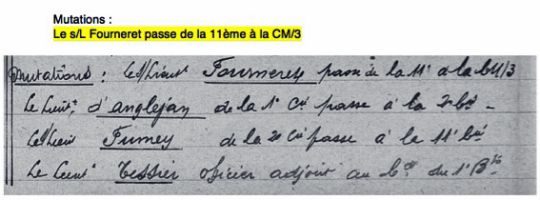 Mutations :
Le s/L Fourneret passe de la 11ème à la CM/3
Mutations : Le s/Lieut Fourneret passe de la 11e a la CM/3
Le Lieut. d'anglejan de la 1e Cie passe à la 2e Cie -
Le s/Lieu Fumey de la 2e Cie passe à la 11e Cie
Le Lieut Tessier officier adjoint au Ct du 1e Bon